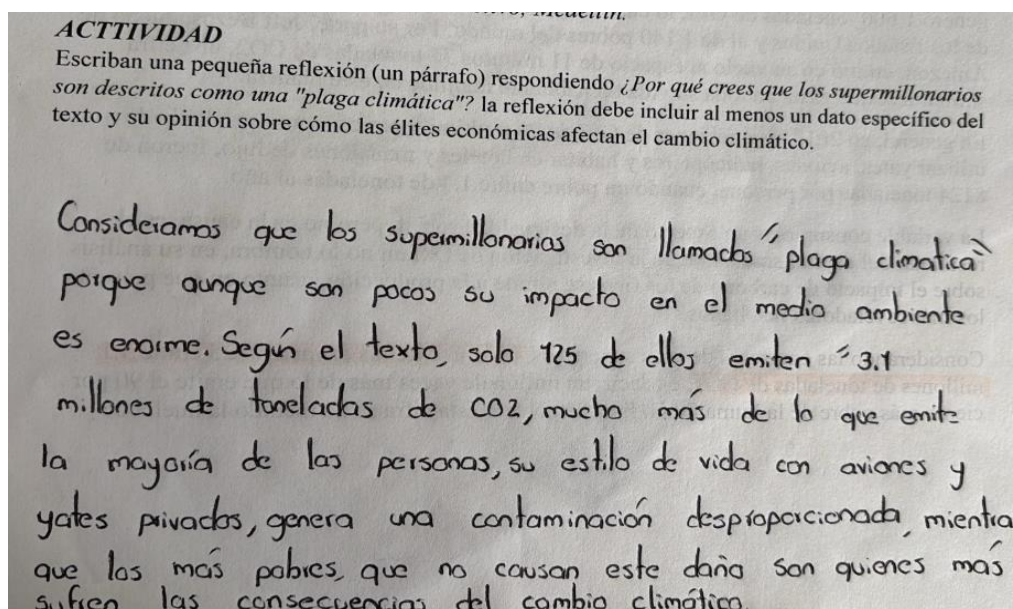 Medellín.
ACTTIVIDAD
Escriban una pequeña reflexión (un párrafo) respondiendo ¿Por qué crees que los supermillonarios
son descritos como una "plaga climática"? la reflexión debe incluir al menos un dato específico del
texto y su opinión sobre cómo las élites económicas afectan el cambio climático.
Consideramos que los supermillonarios son llamados "plaga climatica"
porque aunque son pocos su impacto en el medio ambiente
es enorme. Según el texto, solo 125 de ellos emiten 3.1
millones de toneladas de CO2, mucho más de lo que emite
la mayoría de las personas, su estilo de vida con aviones y
yates privados, genera una contaminación desproporcionada, mientra
que los más pobres, que no causan este daño son quienes más
sufren las consecuencias del cambio climático